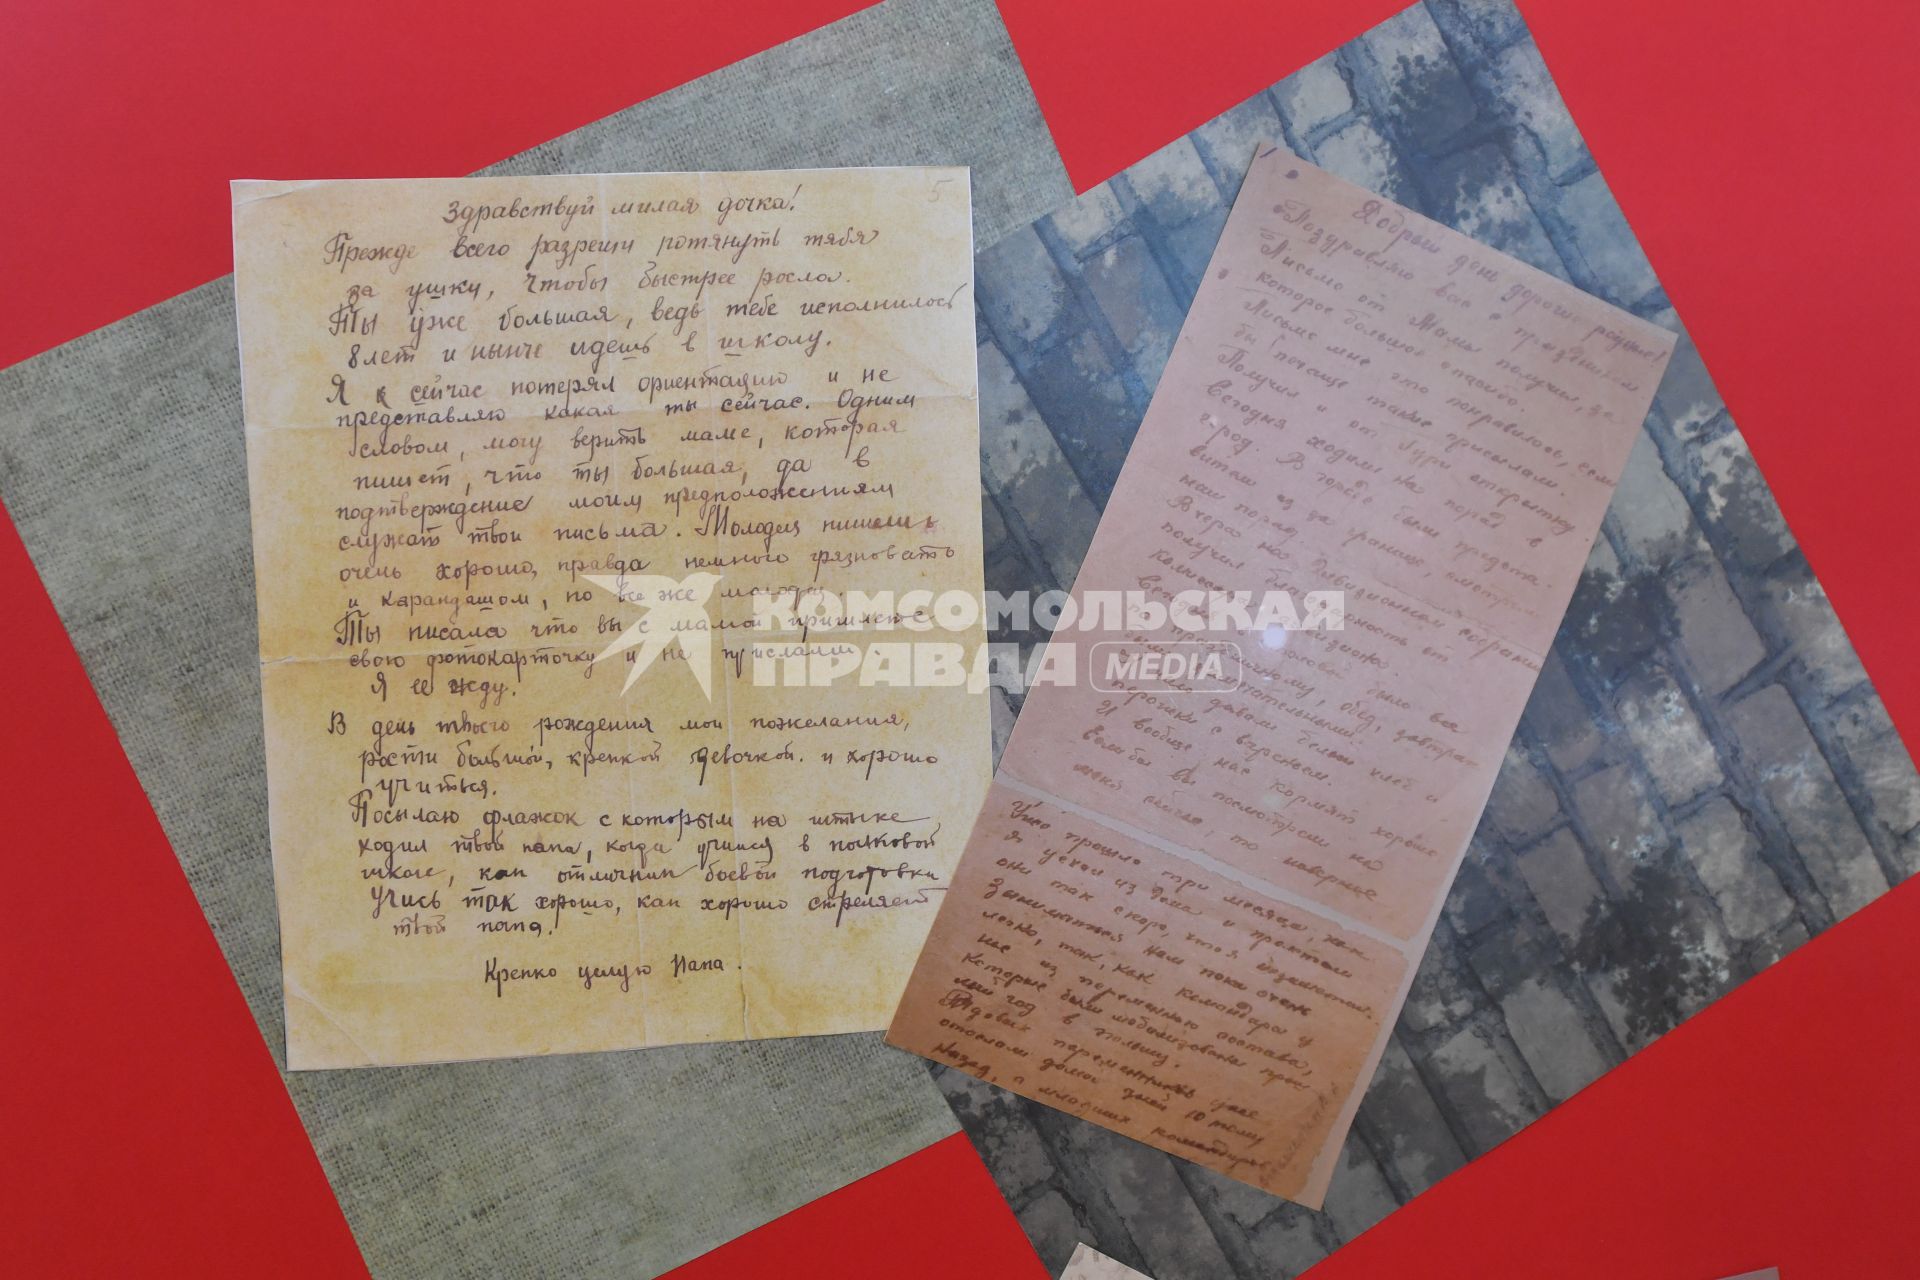 5
Здравствуй милая дочка!
Прежде всего разреши потянуть тябя
за ушку, чтобы быстрее росла.
Ты уже большая, ведь тебе исполнилось
8 лет и нынче идешь в школу.
Я сейчас потерял ориентацию и не
представляю какая ты сейчас. Одним
словом, могу верить маме, которая
пишет, что ты большая, да в
подтверждение моим предположениям
служат твои письма. Молодец пишешь
очень хорошо, правда немного грязновато
и карандашом, но все же молодец.
Ты писала что вы с мамой пришлете
свою фотокарточку и не прислали.
Я ее жду.
В день твоего рождения мои пожелания,
расти большой, крепкой девочкой. и хорошо
учиться.
Посылаю флажок с которым на штыке
ходил твой папа, когда учился в полковой
школе, как отличник боевой подготовки
Учись так хорошо, как хорошо стреляет
твой папа.
Крепко целую Папа.
Добрый день дорогие родные!
Поздравляю вас с праздником
Письмо от Мамы получил, за
которое большое спасибо.
Письме мне это понравилось, если
бы почаще такие присылали.
Получил и от Гури открытку.
Сегодня ходили на парад в
город. В городе были представители
из за границы, смотрели
наш парад.
Вчера на дивизионном собрании
получил благодарность от
комиссара дивизиона.
Сегодня в столовой было все
по праздничному, обед, завтрак
были замечательными.
давали белый хлеб и
пирожки с вареньем.
И вообще нас кормят хорошо
если бы вы посмотрели на
меня сейчас, то наверное
Уже прошло три месяца, как
я уехал из дома и
они так скоро, что я
Заниматься нам пока очень
легко, так, как командиры у
нас из переменного состава,
которые были мобилизованы
год в польшу.
переменников уже
отослали домой дней 10 тому
назад, а младших командиров
КОМСОМОЛЬСКАЯ
ПРАВДА MEDIA